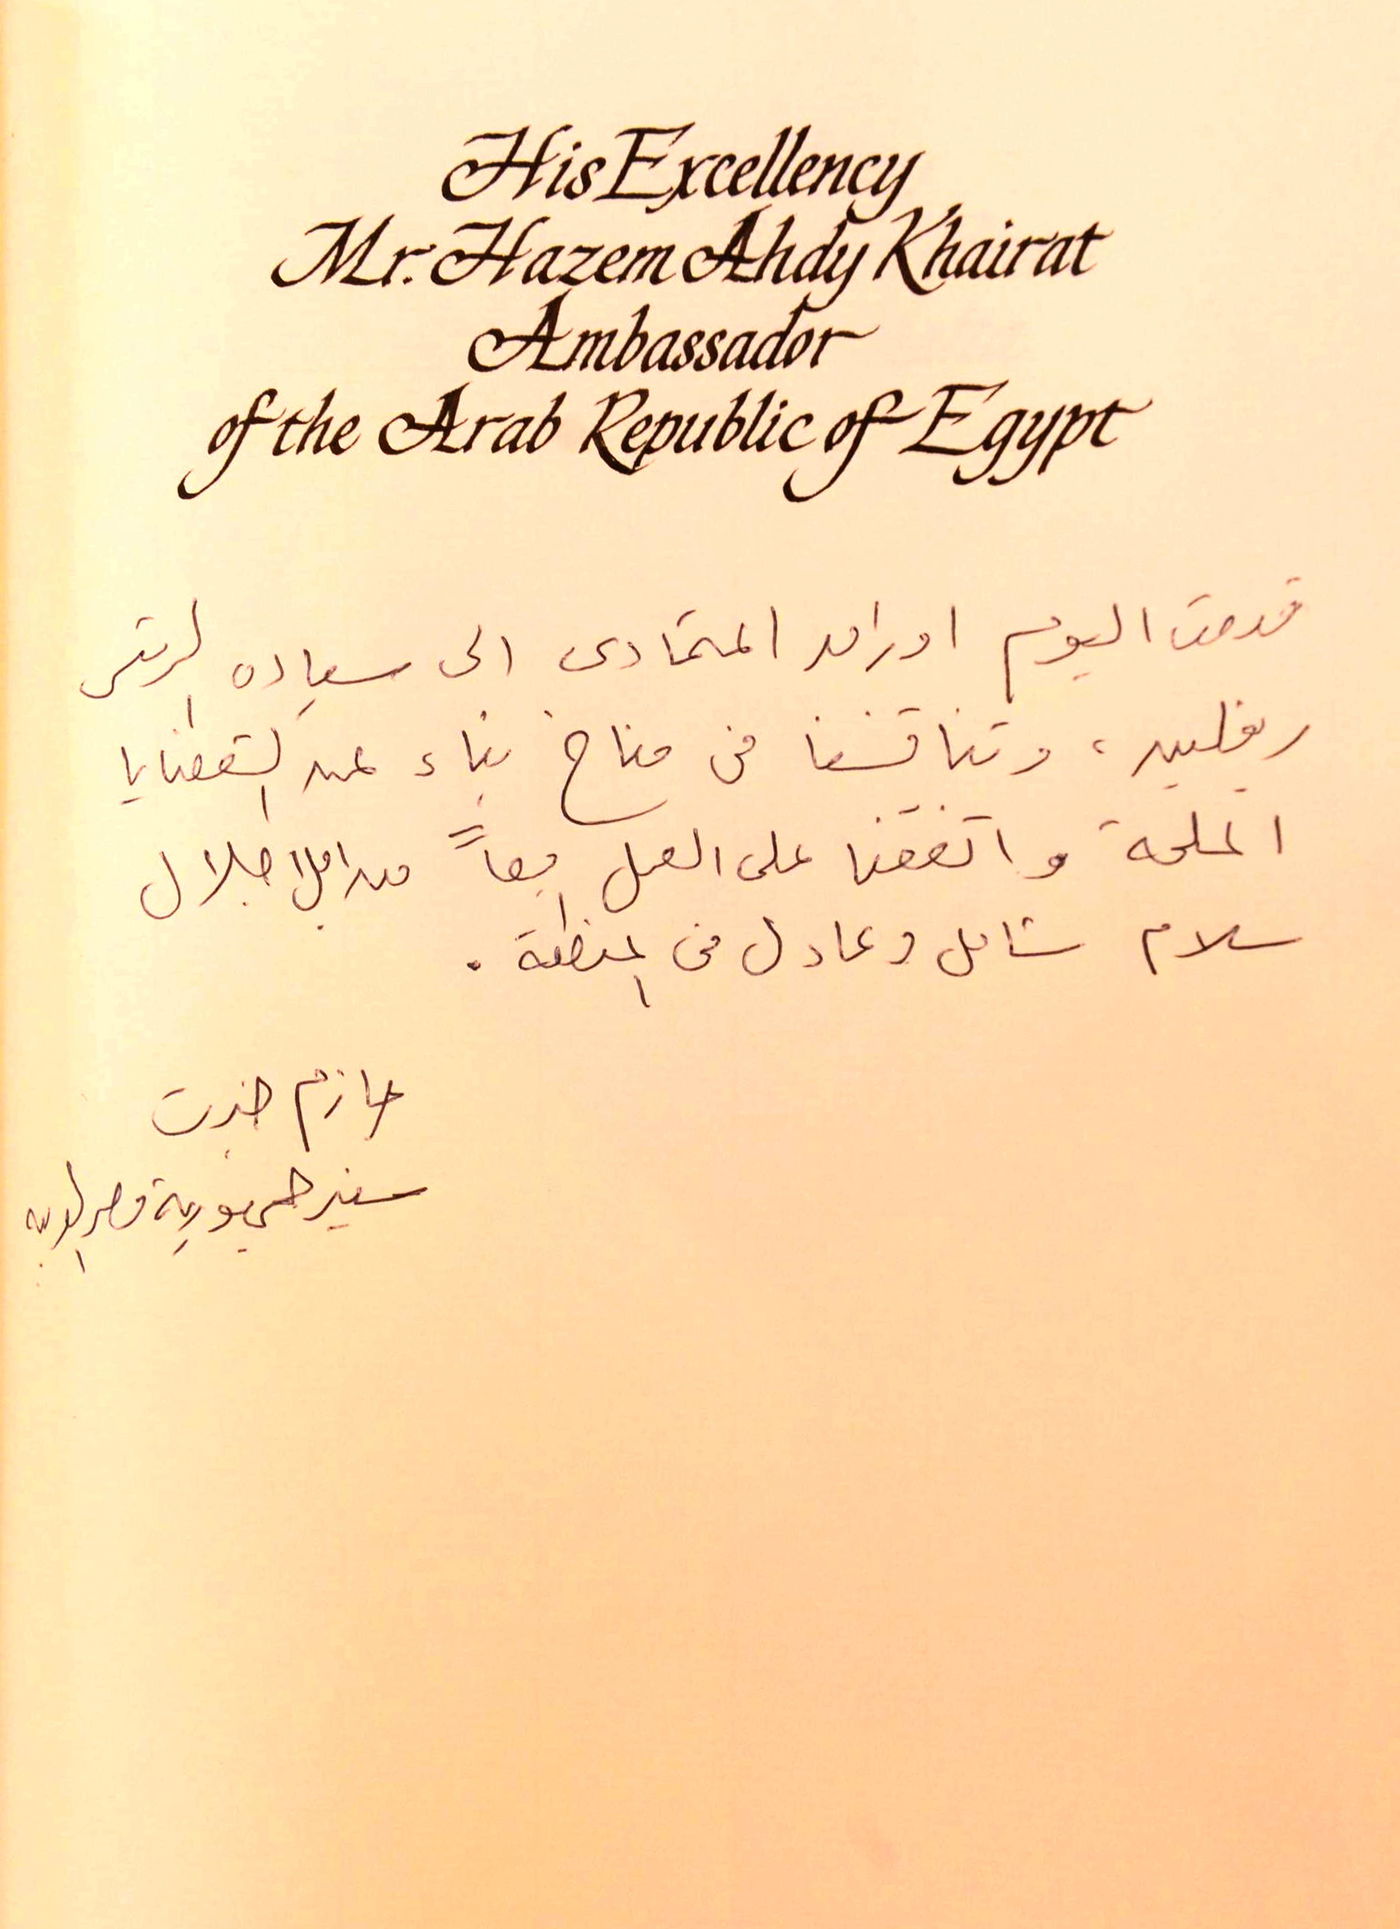 His Excellency
Mr. Hazem Ahdy Khairat
Ambassador
of the Arab Republic of Egypt
قدمت اليوم اوراق اعتمادى الى سيادة الرئيس
ريفلين، وتناقشنا فى مناخ بناء عن القضايا
الملحة و اتفقنا على العمل معاً من اجل احلال
سلام شامل وعادل فى المنطقة.
حازم خيرت
سفير جمهورية مصر العربية